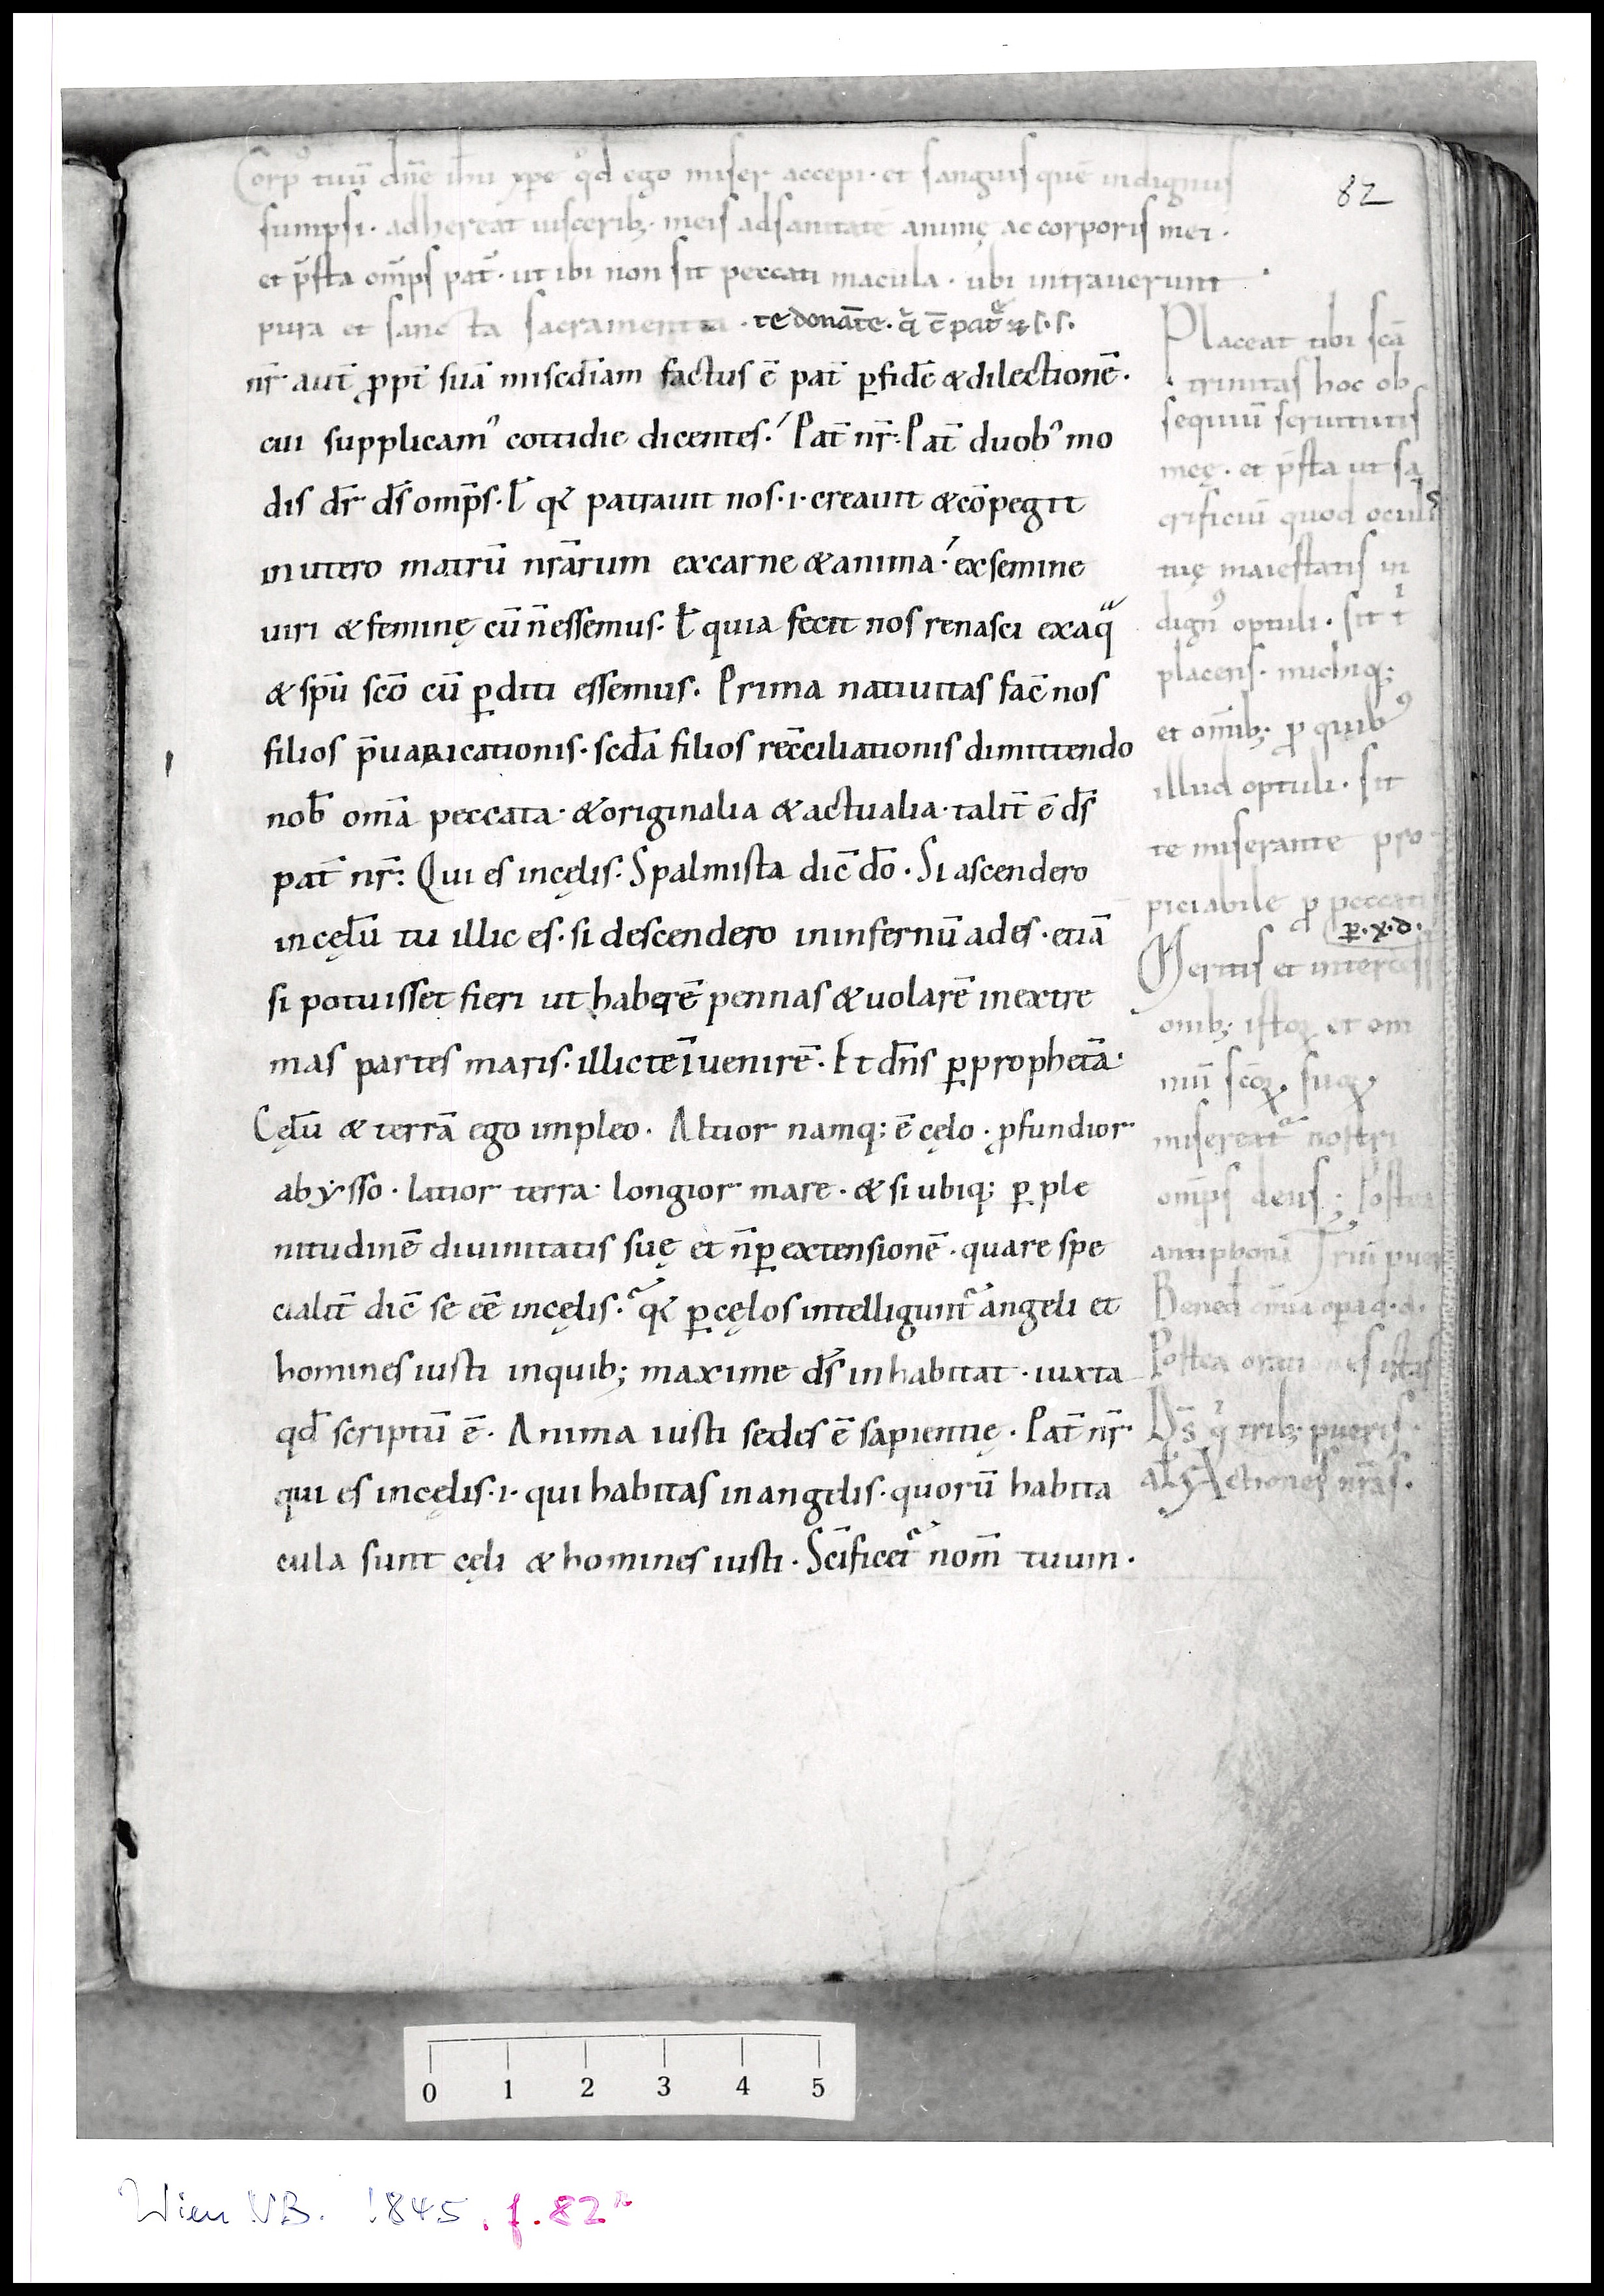 82
Corp᾽ tuū dn̄e ih̄u xp̄e qͦd ego miser accepi · et sanguis quē indignus
sumpsi · adhereat uiscerib; · meis adsanitatē animę ac corporis mei ·
et p̄sta om̄ps pat̄ · ut ibi non sit peccati macula · ubi intrauerunt
pura et sancta sacramenta · te donante ·
nr̄ aut̄ ꝓpt̄ suā miscd̄iam factus ē pat̄ ꝑ fidē & dilectionē ·
cui supplicam᾽ cottidie dicentes · Pat̄ nr̄ : Pat̄ duob᾽ mo
dis dr̄ ds̄ omp̄s · ł qꝛ patrauit nos · i · creauit & cōpegit
in utero matrū nr̄arum excarne & anima · exsemine
uiri & feminę cū n̄ essemus · ł quia fecit nos renasci exaqͣ
& sp̄u scō cū ꝑditi essemus · Prima natiuitas fac̄ nos
filios p̄uaricationis · scd̄a filios rec̄ciliationis dimittendo
nob̄ om̄a peccata · & originalia & actualia · talit̄ ē ds̄
pat̄ nr̄ : Qui es incęlis · Spalmista dic̄ do̅ · Si ascendero
incęlū tu illic es · si descendero ininfernū ades · etiā
si potuisset fieri ut haberē pennas & uolarē inextre
mas partes maris · illic te īuenirē · Et dn̄s ꝑ prophetā ·
Cęlū & terrā ego impleo · Altior namq; ē cęlo · ꝓfundior
abẏsso · latior terra · longior mare · & si ubiq; ꝑ ple
nitudinē diuinitatis suę et n̄ ꝑ extensionē · quare spe
cialit̄ dic̄ se eē incęlis · qꝛ ꝑ cęlos intelligunt᾽ angeli et
homines iusti inquib; maxime ds̄ inhabitat · iuxta
qd̄ scriptū ē · Anima iusti sedes ē sapientię · Pat̄ nr̄ ·
qui es incęlis · i · qui habitas inangelis · quorū habita
cula sunt cęli & homines iusti · Sc̄ificet᾽ nom̄ tuum ·
Placeat tibi scā
trinitas hoc ob
sequiū seruitutis
meę · et p̄sta ut sa
crificiū quod oculis
tuę maiestatis in
dign᾽ optuli · sit t
placens · michiq;
et om̄ib; ꝓ quib᾽
illud optuli · sit
te miserante pro
piciabile ꝓ peccatis
ꝑ · x · d ·
Meritis et intercessi
onib; istoꝝ et om
niū scōꝝ suoꝝ
misereat᾽ nostri
omp̄s deus ; Postea
antiphonā Triū puer
Bened̄ om̄ia opa
Postea orationes istas
Ds̄ q trib; pueris ·
Actiones nr̄as ·
0 1 2 3 4 5
Wien NB. 1845, f. 82ʳ